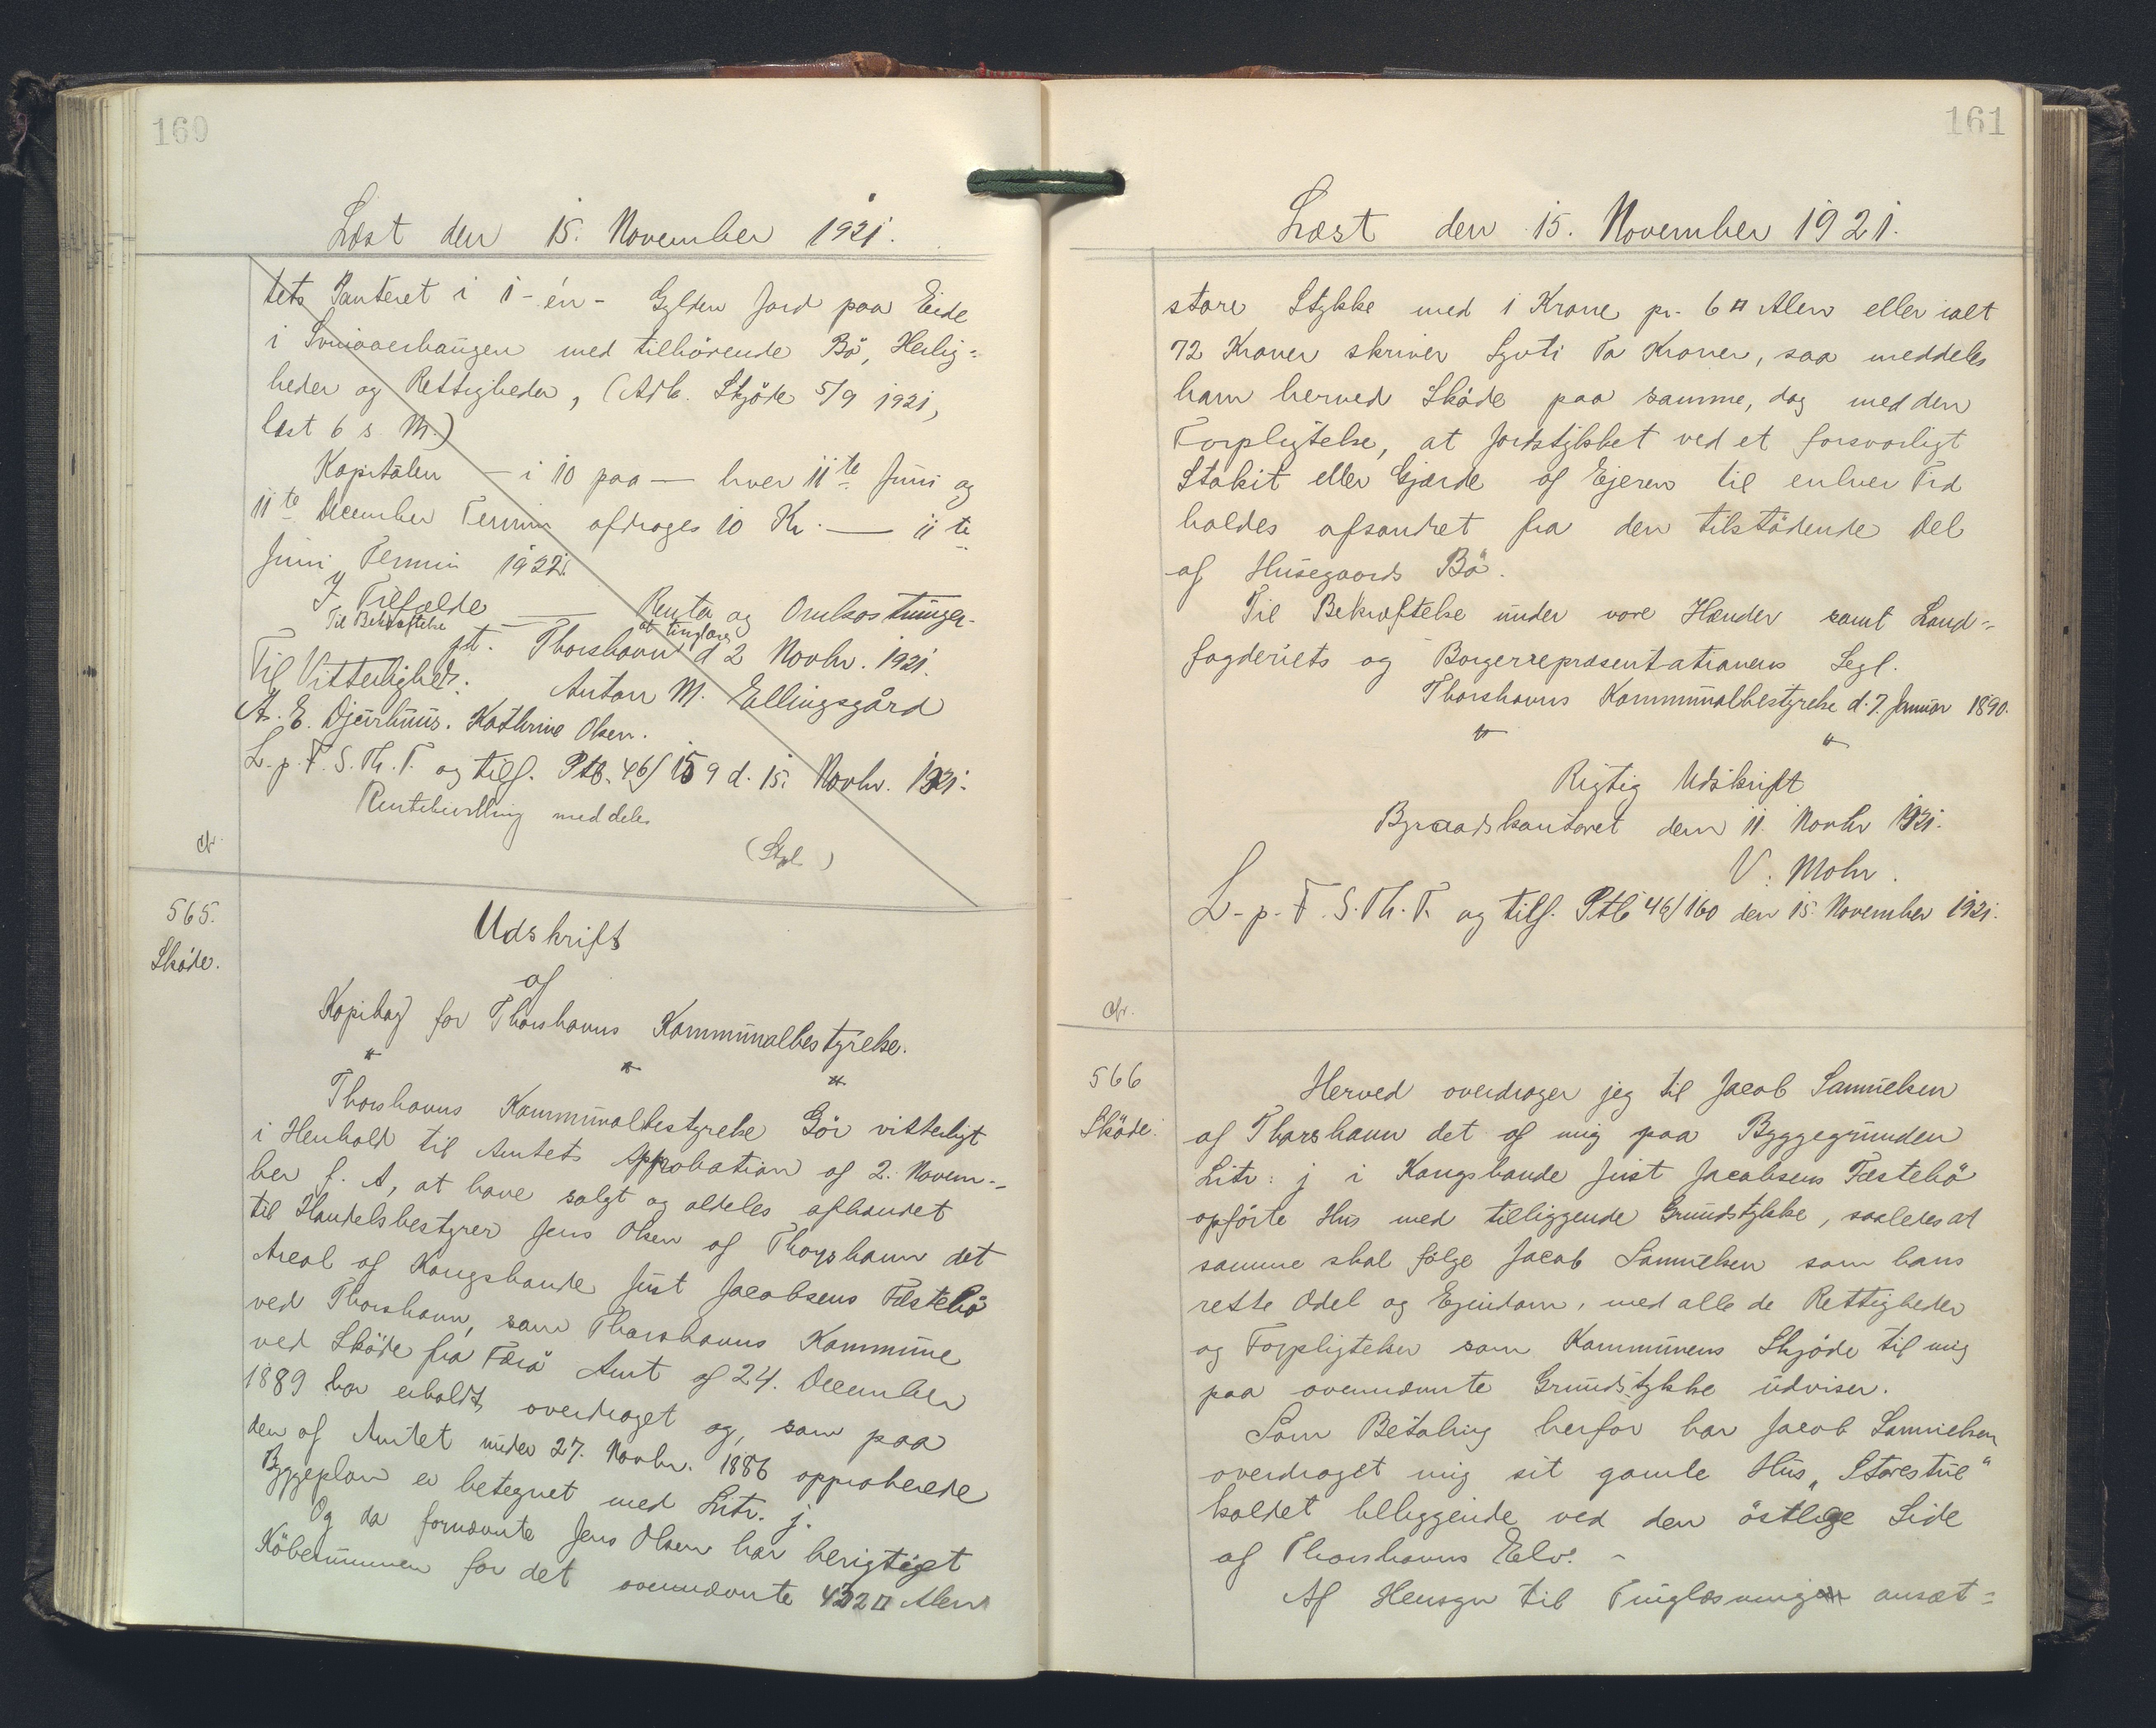 160
Læst den 15. November 1921.
tets Panteret i 1 - én - Gylden Jord paa Eide
i med tilhörende Bö, Herlig=
heder og Rettigheder, (Adk. Skjöde 5/9 1921,
læst 6 s. M.)
Kapitalen — i 10 paa — hver 11te Juni og
11te December Termin afdrages 10 Kr. — 11te
Juni Termin 1922.
I Tilfælde — Renter og Omkostninger.
Til Bekræftelse at tinglæses
pt. Thorshavn d 2 Novbr. 1921.
Til Vitterlighed: Anton M. Ellingsgård
A. E. Djurhuus. Kathrine Olsen.
L. p. F. S. Th. T. og tilf. Ptb. 46/159 d. 15. Novbr. 1921.
meddeles
(Stpl.)
cfr.
565.
Sköde.
Udskrift
af
Kopibog for Thorshavns Kommunalbestyrelse.
" " "
Thorshavns Kommunalbestyrelse Gör vitterligt
i Henhold til Amtets Approbation af 2. Novem=
ber f. A, at have solgt og aldeles afhændet
til Handelsbestyrer Jens Olsen af Thorshavn det
Areal af Kongsbonde Just Jacobsens Fæstebö
ved Thorshavn, som Thorshavns Kommune
ved Sköde fra Færö Amt af 24. December
1889 har erholdt overdraget og, som paa
den af Amtet under 27. Novbr. 1886 approberede
Byggeplan er betegnet med Litr. j.
Og da fornævnte Jens Olsen har berigtiget
Köbesummen for det ovennævnte 432 □ Alen
161
Læst den 15. November 1921.
store Stykke med 1 Krone pr. 6 □ Alen eller ialt
72 Kroner skriver Syvti To Kroner, saa meddeles
ham herved Sköde paa samme, dog med den
Forpligtelse, at Jordstykket ved et forsvarligt
Stakit eller Gjærde af Ejeren til enhver Tid
holdes afsondret fra den tilstödende Del
af Husegaards Bö.
Til Bekræftelse under vore Hænder samt Land=
fogderiets og Borgerrepræsentationens Segl.
Thorshavns Kommunalbestyrelse d. 7. Januar 1890.
" "
Rigtig Udskrift
Byraadskontoret den 11. Novbr 1921.
V. Mohr.
L. p. F. S. Th. T. og tilf. Ptb 46/160 den 15. November 1921.
cfr.
566
Sköde.
Herved overdrager jeg til Jacob Samuelsen
af Thorshavn det af mig paa Byggegrunden
Litr: j i Kongsbonde Just Jacobsens Fæstebö
opförte Hus med tilliggende Grundstykke, saaledes at
samme skal fölge Jacob Samuelsen som hans
rette Odel og Ejendom, med alle de Rettigheder
og Forpligtelser som Kommunens Skjöde til mig
paa ovennævnte Grundstykke udviser.
Som Betaling herfor har Jacob Samuelsen
overdraget mig sit gamle Hus „Storestue"
kaldet beliggende ved den östlige Side
af Thorshavns Elv. -
Af Hensyn til Tinglæsning ansæt=